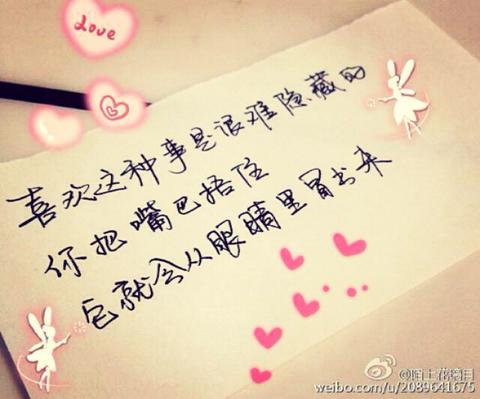 Love
喜欢这种事是很难隐藏的
你把嘴巴捂住
它就会从眼睛里冒出来
weibo.com/u/2089641675